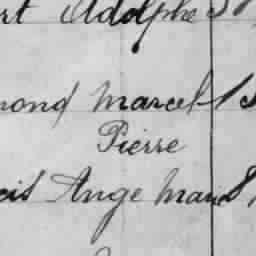 rt Adolphe S
mond Marcel 1S
Pierre
cis Ange Marc 8